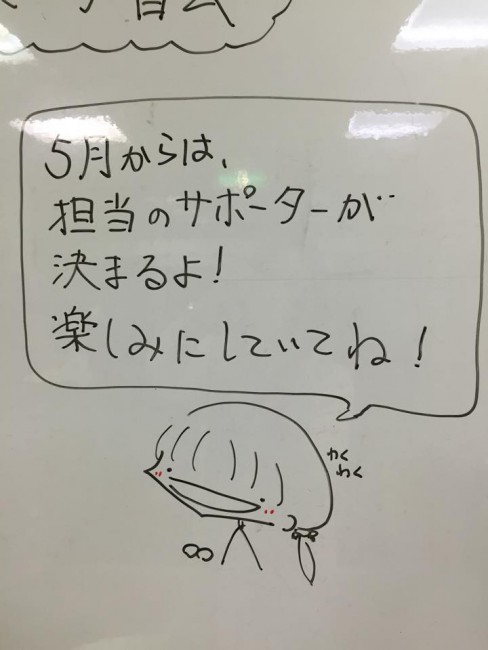 5月からは、
担当のサポーターが
決まるよ!
楽しみにしていてね!
わく
わく